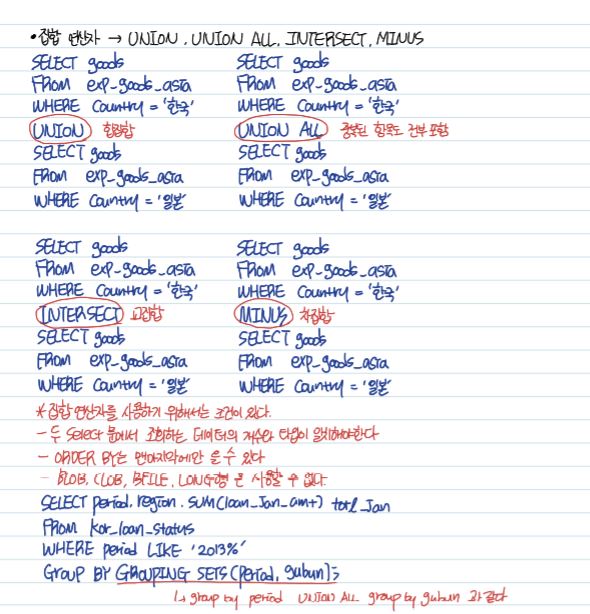 • 집합 연산자 → UNION, UNION ALL, INTERSECT, MINUS
SELECT goods
FROM exp_goods_asia
WHERE Country = '한국'
UNION 합집합
SELECT goods
FROM exp_goods_asia
WHERE Country = '일본'
SELECT goods
FROM exp_goods_asia
WHERE Country = '한국'
UNION ALL 중복된 항목도 전부 포함
SELECT goods
FROM exp_goods_asia
WHERE Country = '일본'
SELECT goods
FROM exp_goods_asia
WHERE Country = '한국'
INTERSECT 교집합
SELECT goods
FROM exp_goods_asia
WHERE Country = '일본'
SELECT goods
FROM exp_goods_asia
WHERE Country = '한국'
MINUS 차집합
SELECT goods
FROM exp_goods_asia
WHERE Country = '일본'
* 집합 연산자를 사용하기 위해서는 조건이 있다.
- 두 Select 문에서 조회하는 데이터의 개수와 타입이 일치해야한다
- ORDER BY는 맨마지막에만 올 수 있다
- BLOB, CLOB, BFILE, LONG형은 사용할 수 없다.
SELECT period, region, SUM(loan_Jan_amt) totl_Jan
FROM kor_loan_status
WHERE period LIKE '2013%'
Group BY GROUPING SETS(Period, gubun);
↳ group by period UNION ALL group by gubun 과 같다